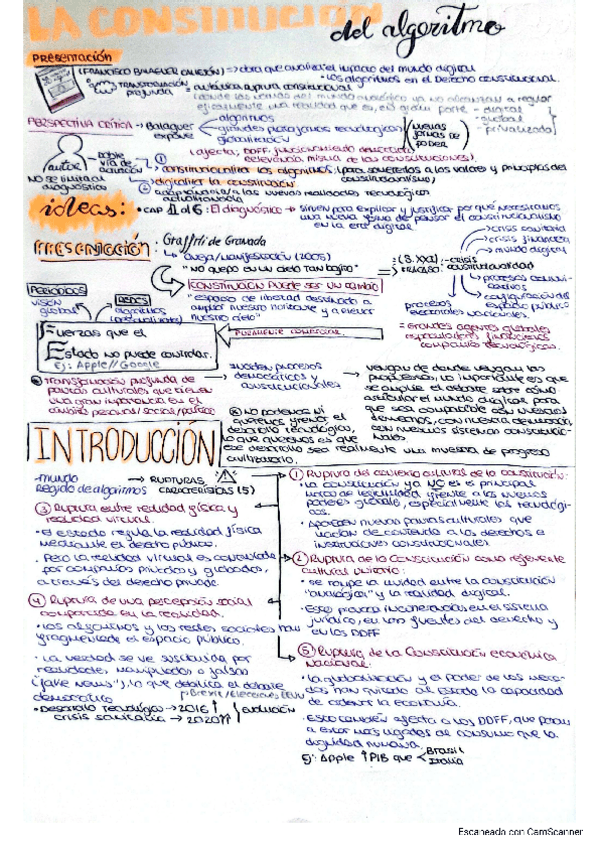 LA CONSTITUCIÓN del algoritmo
Presentación
(FRANCISCO BALAGUER CALLEJÓN) => obra que analiza el impacto del mundo digital
• Los algoritmos en el Derecho constitucional.
TRANSFORMACIÓN profunda = auténtica ruptura constitucional
(donde las normas del mundo analógico ya no alcanzan a regular
eficazmente una realidad que es, en gran parte - digital
- global
- privatizada)
PERSPECTIVA CRÍTICA → Balaguer expone
algoritmos
grandes plataformas tecnológicas
globalización
nuevas formas de PODER
(afecta, DDFF, funcionamiento democrático
relevancia misma de las constituciones).
autor
NO se limita al diagnóstico
Doble vía de actuación
① constitucionalizar los algoritmos (para someterlos a los valores y principios del constitucionalismo)
② digitalizar la constitución
a las nuevas realidades tecnológicas
ideas:
• CAP 1 al 6: El diagnóstico → sirven para explicar y justificar por qué necesitamos
una nueva forma de pensar el constitucionalismo
en la era digital
PRESENTACIÓN:
Graffiti de Granada
(2005)
"NO quepo en un cielo tan bajito"
CONSTITUCIÓN PUEDE SER UN CAMBIO
"espacio de libertad destinado a
ampliar nuestro horizonte y a elevar
nuestro cielo"
(S.XXI) → crisis constitucionalidad
crisis sanitaria
crisis financiera
mundo digital
procesos
configuración del espacio público
procesos electorales nacionales.
= Grandes agentes globales
especuladores financieros
compañías tecnológicas.
PERIÓDICOS
visión global
REDES
algoritmos
Fuerzas que el
Estado no puede controlar.
Ej: Apple // Google
PURAMENTE COMERCIAL.
Transformación profunda de
pautas culturales que tienen
una gran importancia en el
ámbito personal/social/político
procesos
democráticos y
constitucionales
vengan de donde vengan las
propuestas, lo importante es que
se amplíe el debate sobre cómo
articular el mundo digital para
que sea compatible con nuestros
derechos, con nuestra democracia,
con nuestros sistemas constitucio-
nales.
NO podemos ni
queremos frenar el
desarrollo tecnológico,
lo que queremos es que
ese desarrollo sea realmente una muestra de progreso
civilizatorio.
INTRODUCCIÓN
mundo
Regido de algoritmos → RUPTURAS
CARACTERÍSTICAS (5)
① Ruptura del contexto cultural de la constitución:
• La constitución ya NO es el principal
marco de legitimidad frente a los nuevos
poderes globales, especialmente los tecnológi-
cos.
• Aparecen nuevas pautas culturales que
vacían de contenido a los derechos e
instituciones constitucionales.
② Ruptura de la Constitución como referente
cultural unitario:
• se rompe la unidad entre la constitución
"analógica" y la realidad digital.
• Esto provoca incoherencias en el sistema
jurídico, en las fuentes del derecho y
en los DDFF
③ Ruptura entre realidad física y
realidad virtual.
• el estado regula la realidad física
mediante el derecho público.
• Pero la realidad virtual es controlada
por compañías privadas y globales,
a través del derecho privado.
④ Ruptura de una percepción social
compartida en la realidad.
• Los algoritmos y las redes sociales han
fragmentado el espacio público.
• La verdad se ve sustituida por
realidades manipuladas o falsas
("fake news"), lo que debilita el debate
democrático
Brexit/Elecciones EEUU
• Desarrollo Tecnológico → 2016 ↑
crisis sanitaria → 2020 ↑↑
Evolución
⑤ Ruptura de la Constitución económica
Nacional.
• La globalización y el poder de los merca-
dos han quitado al Estado la capacidad
de ordenar la economía.
• Esto también afecta a los DDFF, que pasan
a estar más ligados al consumo que la
dignidad humana.
Ej: Apple ↑ PIB que Brasil
Italia
Escaneado con CamScanner